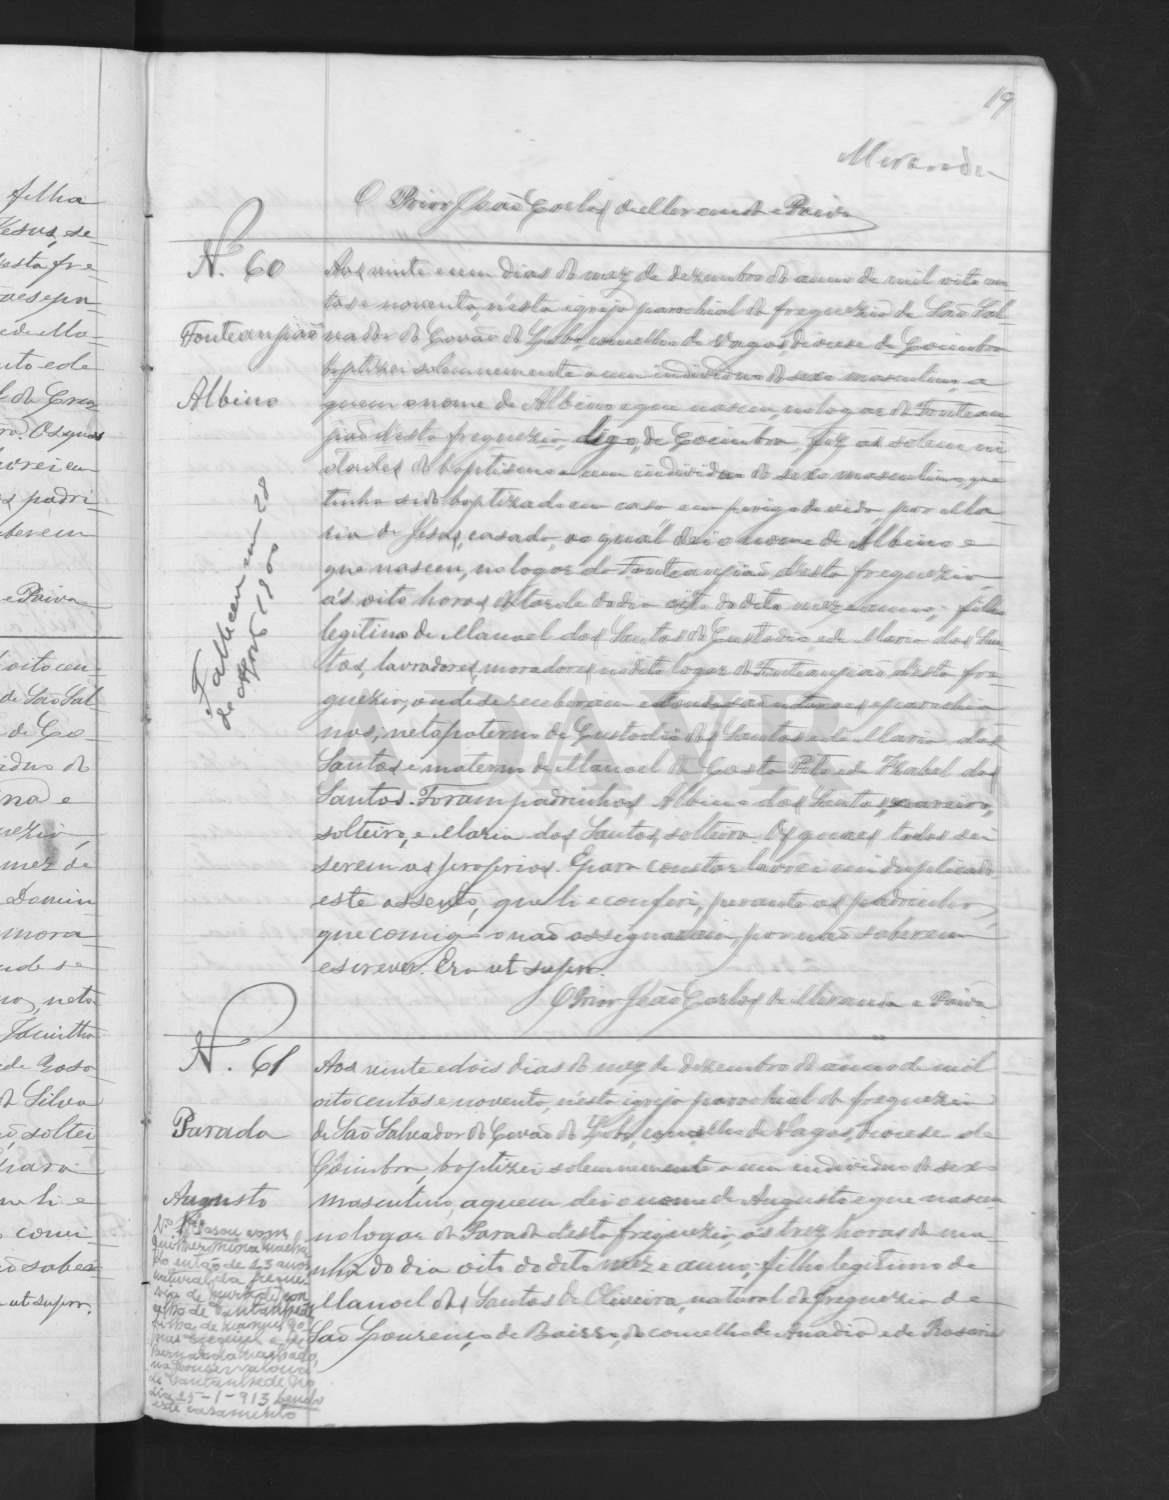 19
Miranda
O Prior João Carlos de Miranda e Paiva
N. 60
Fonteangião
Albino
Falleceu em 28
de Agosto 1 8
Aos vinte e um dias do mez de dezembro do anno de mil oito cen-
tos e noventa, n'esta igreja parochial da freguezia de São Sal-
vador do Covão do Lobo, concelho de Vagos, diocese de Coimbra
baptizei solemnemente a um individuo do sexo masculino, a
quem o nome de Albino e que nasceu, no logar de Fontean-
gião d'esta freguezia, digo, de Coimbra, fiz as solemni-
dades do baptismo a um individuo do sexo masculino, que
tinha sido baptizado em caso em perigo de vida, por Ma-
ria de Jesus, casada, ao qual dei o nome de Albino e
que nasceu, no logar de Fonteangião d'esta freguezia
ás oito horas da tarde do dia oito do dito mez e anno, filho
legitimo de Manoel dos Santos de Custodio, e de Maria dos San-
tos, lavradores, moradores no dito logar de Fonteangião d'esta fre-
guezia, onde se receberam e d'onde são naturaes e parochia-
nos; neto paterno de Custodio dos Santos e de Maria dos
Santos e materno de Manoel da Costa e de Izabel dos
Santos. Foram padrinhos Albino dos Santos,
solteiro, e Maria dos Santos, solteira. Os quaes todos sei
serem os proprios. E para constar lavrei em duplicado
este assento, que li e conferi, perante os padrinhos,
que comigo não assignaram, por não saberem
escrever. Era ut supra.
O Prior João Carlos de Miranda e Paiva
N. 61
Parada
Augusto
Casou com
Guilhermina
de 23 anos
natural da fregue-
zia de
de Cantanhede
filha de
e de
Bernarda Machado,
na Conservatoria
de Cantanhede, no
dia 25-1-913
este casamento
Aos vinte e dois dias do mez de dezembro do anno de mil
oitocentos e noventa, n'esta igreja parochial da freguezia
de São Salvador do Covão do Lobo, concelho de Vagos, diocese de
Coimbra, baptizei solemnemente a um individuo do sexo
masculino, a quem dei o nome de Augusto e que nasceu
no logar da Parada d'esta freguezia, ás trez horas da ma-
nhã do dia oito do dito mez e anno; filho legitimo de
Manoel dos Santos de Oliveira, natural da freguezia de
São Lourenço do Bairro, do concelho de Anadia e de Rosaria
filha
Jesus, se-
esta fre-
de Ma-
da Cruz
Os quaes
lavrei em
os padri-
saberem
e Paiva
oitocen-
de São Sal-
de Co-
individuo do
mez de
Domin-
mora-
onde se
neto
Jacintho
e de Roso
da Silva
solte-
para
que li e
comi-
não saber
ut supra.
ADAVR